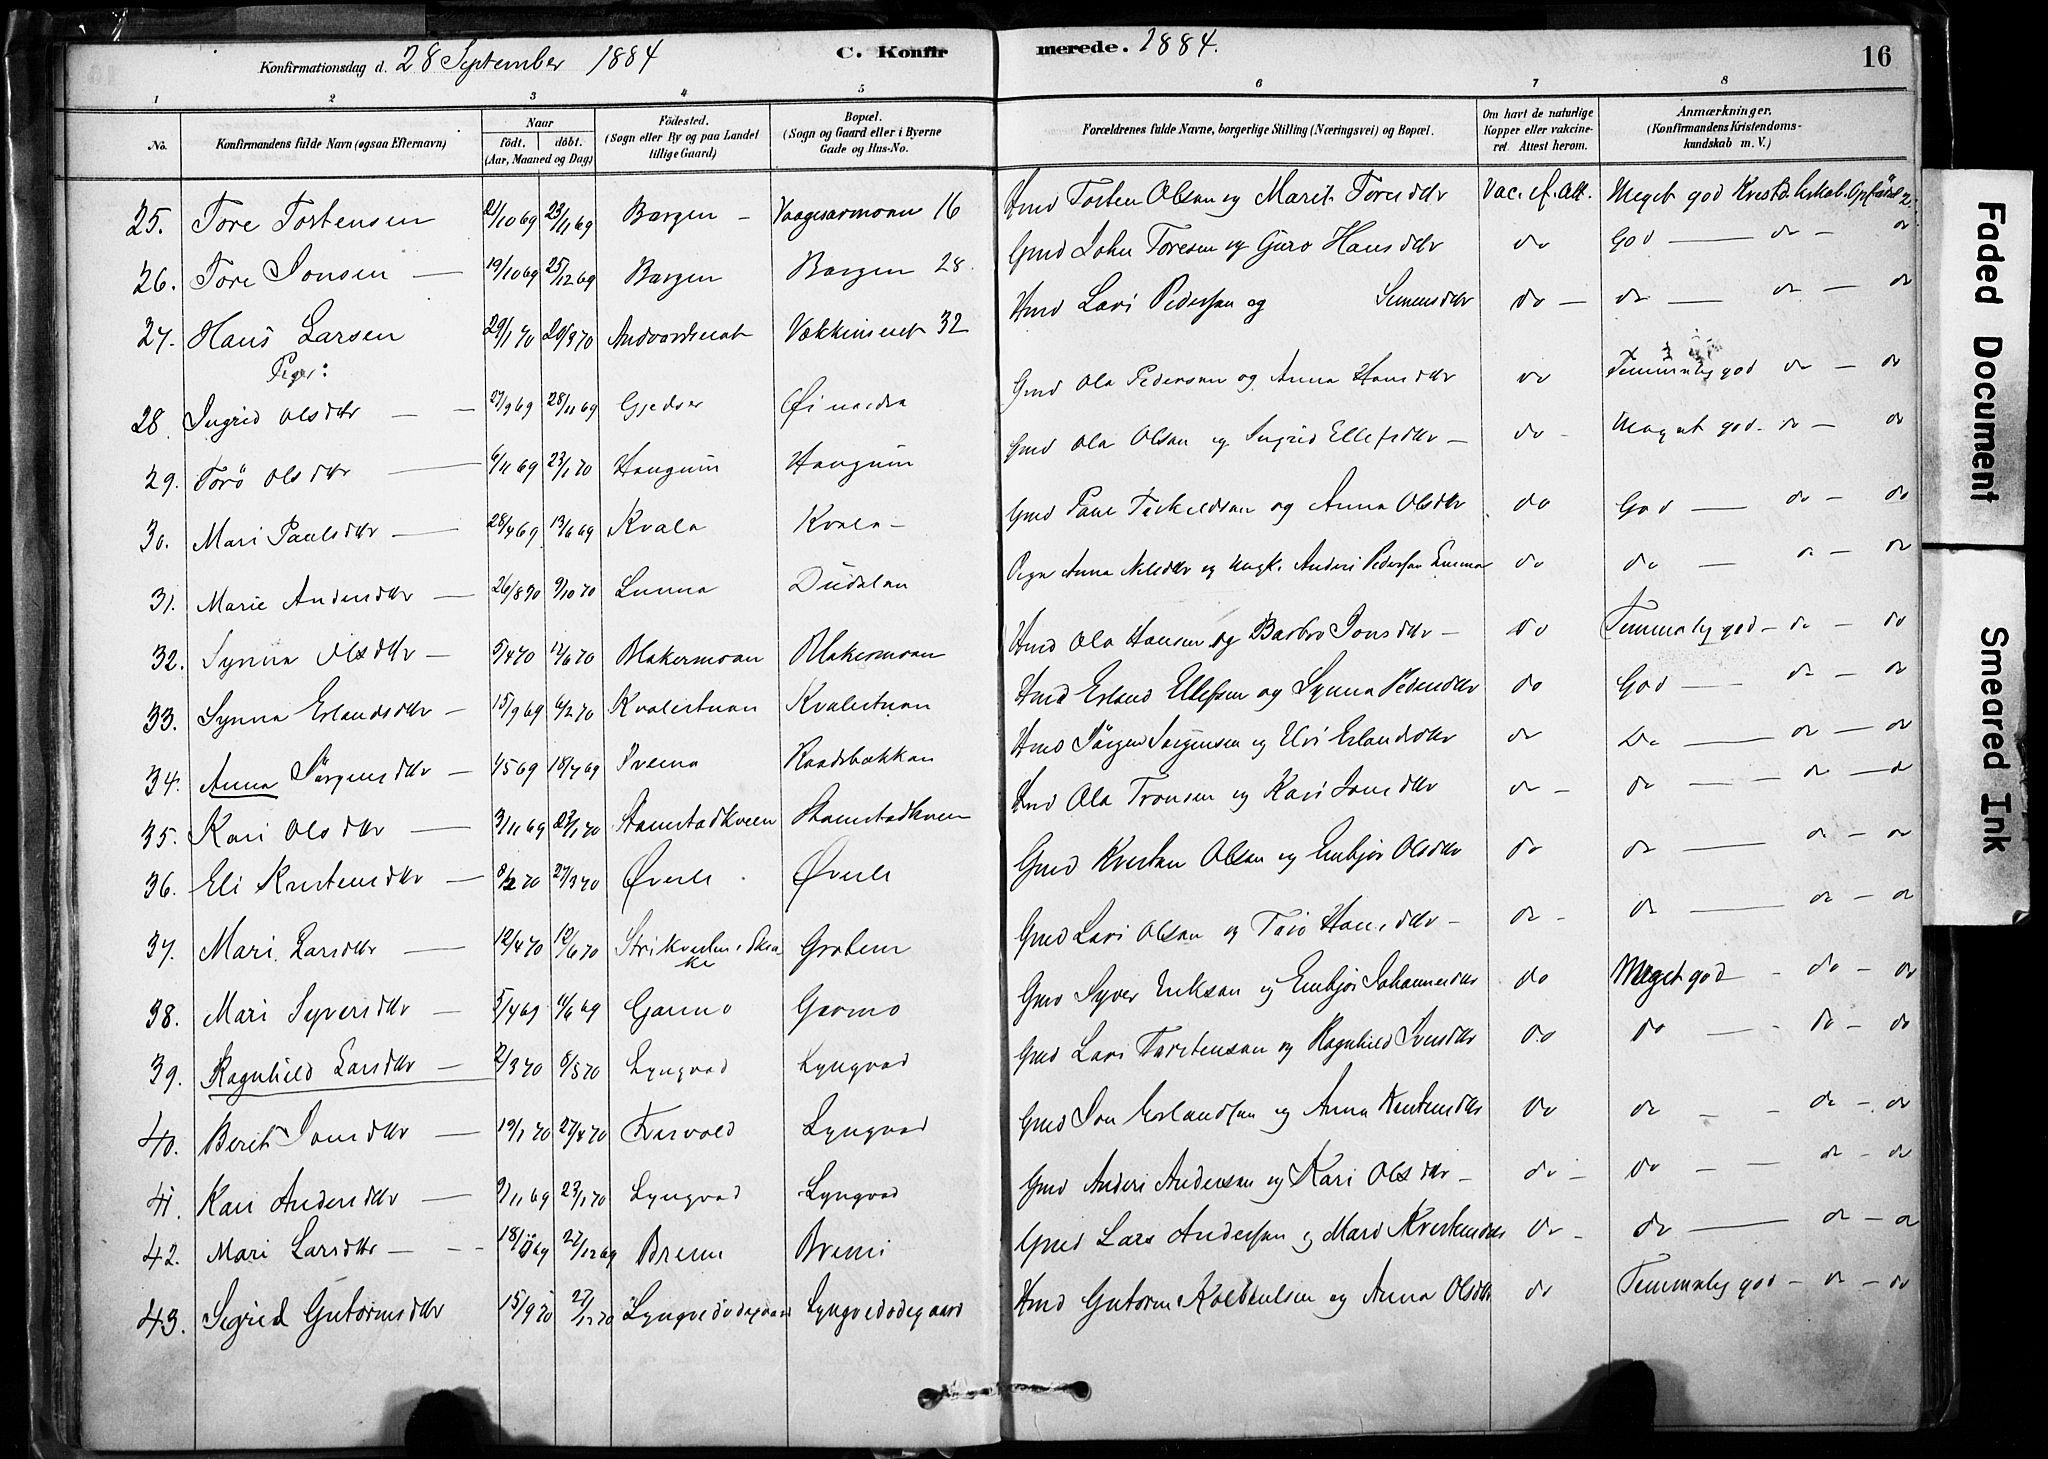 Konfirmationsdag d. 28 September 1884 C. Konfirmerede. 1884. 16
1 2 3 4 5 6 7 8
No. Konfirmandens fulde Navn (ogsaa Efternavn) Naar født. døbt. (Aar, Maaned og Dag) Fødested. (Sogn eller By og paa Landet tillige Gaard) Bopæl. (Sogn og Gaard eller i Byerne Gade og Hus-No. Forældrenes fulde Navne, borgerlige Stilling (Næringsvei) og Bopæl. Om havt de naturlige Kopper eller vakcineret. Attest herom. Anmærkninger. (Konfirmandens Kristendomskundskab m. V.)
25. Tore Tostensen 21/10 69 23/11 69 Bargen - Vaagesarmoen 16 Hmd Tosten Olsen og Marit Toresdtr Vac. ef. Att. Meget god
26. Tore Jonsen 19/10 69 25/12 69 Bargen Bargen 28. Gmd John Toresen og Guro Hansdtr do God do - do
27. Hans Larsen 29/1 70 20/3 70 32 Hmd Lars Pedersen og Simensdtr do do do - do
Piger:
28. Ingrid Olsdtr 27/9 69 28/11 69 Gjedser Gmd Ola Pedersen og Anna Hansdtr do Temmelig god do - do
29. Torö Olsdtr 6/11 69 23/1 70 Haugum Haugum Gmd Ola Olsen og Ingrid Ellefsdtr do Meget god - do - do
30. Mari Paulsdtr 28/4 69 13/6 69 Kvala Kvala Gmd Paul og Anna Olsdtr do God do - do
31. Marie Andersdtr 26/8 70 9/10 70 Lunna Dudalen Pige Anna Nilsdtr og Ungk. Anders Pedersen Lunna do do do - do
32. Synna Olsdtr 5/4 70 12/6 70 Blakermoan Blakermoan Hmd Ola Hansen og Barbro Jonsdtr do Temmelig god - do - do
33. Synna Erlandsdtr 15/9 69 6/2 70 Kvalestuan Kvalestuan Hmd Erland Ellefsen og Synna Pedersdtr do God do - do
34. Anna Jørgensdtr 4/5 69 18/7 69 Prema Raadsbakkan Hmd Jørgen Jørgensen og Erlandsdtr do Do do - do
35. Kari Olsdtr 3/11 69 23/1 70 Stamstadkveen Stamstadkveen Hmd Ola Tronsen og Kari Jonsdtr do do do - do
36. Eli Kristensdtr 8/2 70 27/3 70 Øverli Øverli Gmd Kristen Olsen og Embjør Olsdtr do do do - do
37. Mari Larsdtr 12/4 70 12/6 70 Groten Gmd Lars Olsen og Hansdtr do do do - do
38. Mari Syversdtr 5/4 69 6/6 69 Garmo Garmo Gmd Syver Eriksen og Embjør Johannesdtr do Meget god - do - do
39. Ragnhild Larsdtr 2/3 70 8/5 70 Lyngvad Lyngvad Gmd Lars Torstensen og Ragnhild Iversdtr do do do - do
40. Berit Jonsdtr 19/1 70 27/4 70 Forvold Lyngvad Gmd Jon Erlandsen og Anna Kristensdtr do do do - do
41. Kari Andersdtr 9/11 69 23/1 70 Lyngvad Lyngvad Gmd Anders Andersen og Kari Olsdtr do do do - do
42. Mari Larsdtr 22/12 69 Bremi Bremi Gmd Lars Andersen og Mari Kristensdtr do do do - do
43. Sigrid Gutormsdtr 15/9 70 27/12 70 Lyngvedødegaard Lyngvedødegaard Hmd Gutorm Kolbeinsen og Anna Olsdtr do Temmelig god - do - do
Faded Document
Smeared Ink